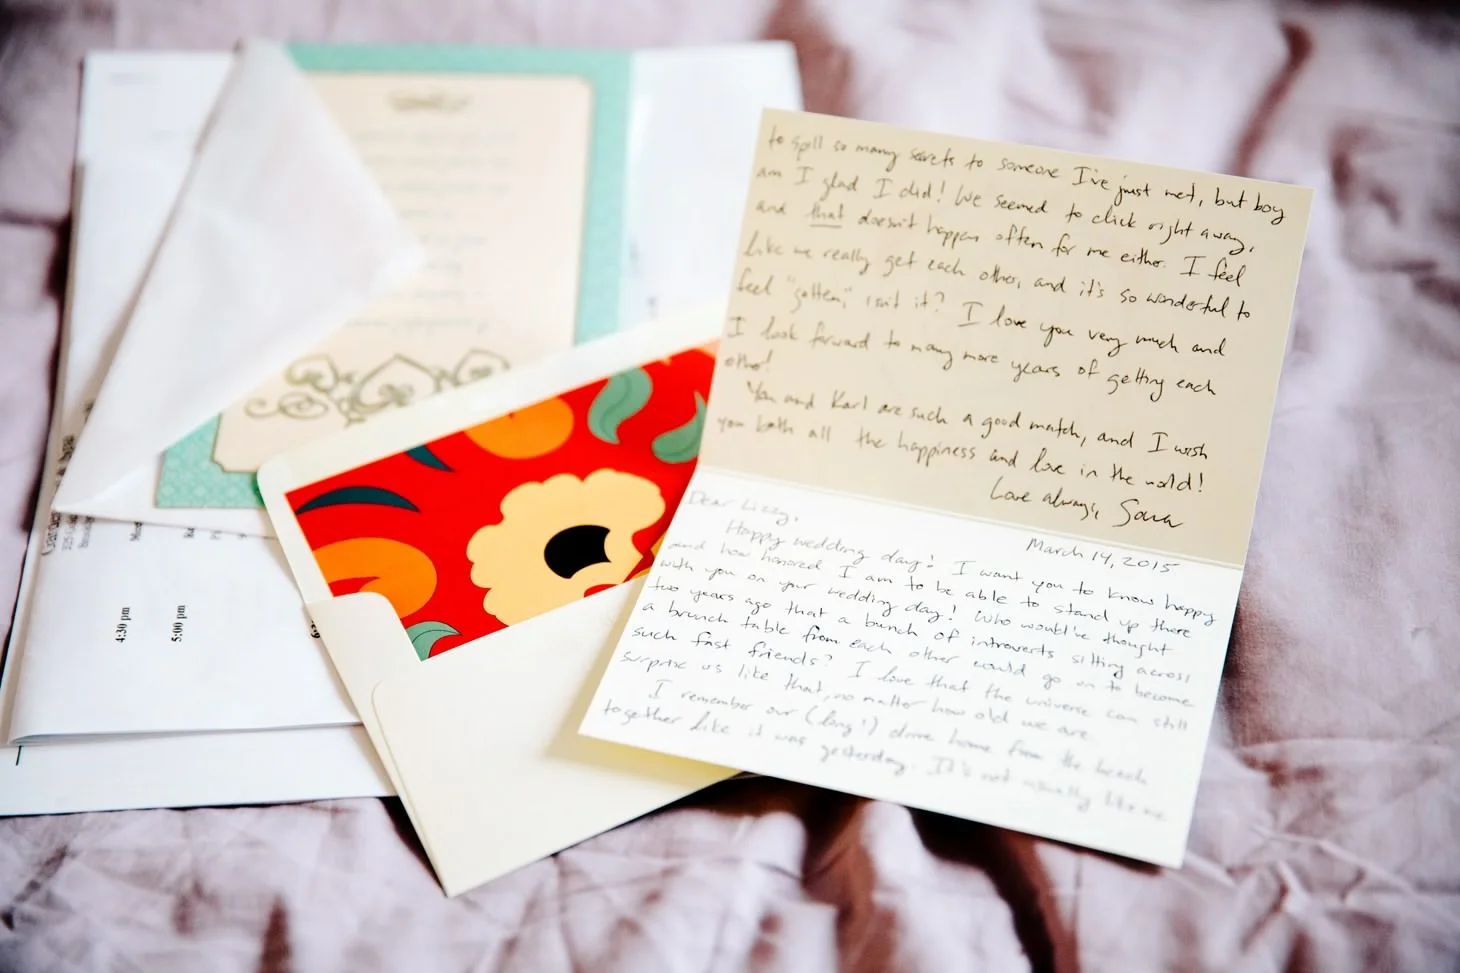 to spill so many secrets to someone I've just met, but boy
am I glad I did! We seemed to click right away,
and that doesn't happen often for me either. I feel
like we really get each other, and it's so wonderful to
feel "gotten," isn't it? I love you very much and
I look forward to many more years of getting each
other!
You and Karl are such a good match, and I wish
you both all the happiness and love in the world!
Love always, Sara
March 14, 2015
Dear Lizzy,
Happy wedding day! I want you to know happy
and how honored I am to be able to stand up there
with you on your wedding day! Who would've thought
two years ago that a bunch of introverts sitting across
a brunch table from each other would go on to become
such fast friends? I love that the universe can still
surprise us like that, no matter how old we are.
I remember our (long!) drive home from the beach
together like it was yesterday. It's not usually like me
4:30 pm
5:00 pm